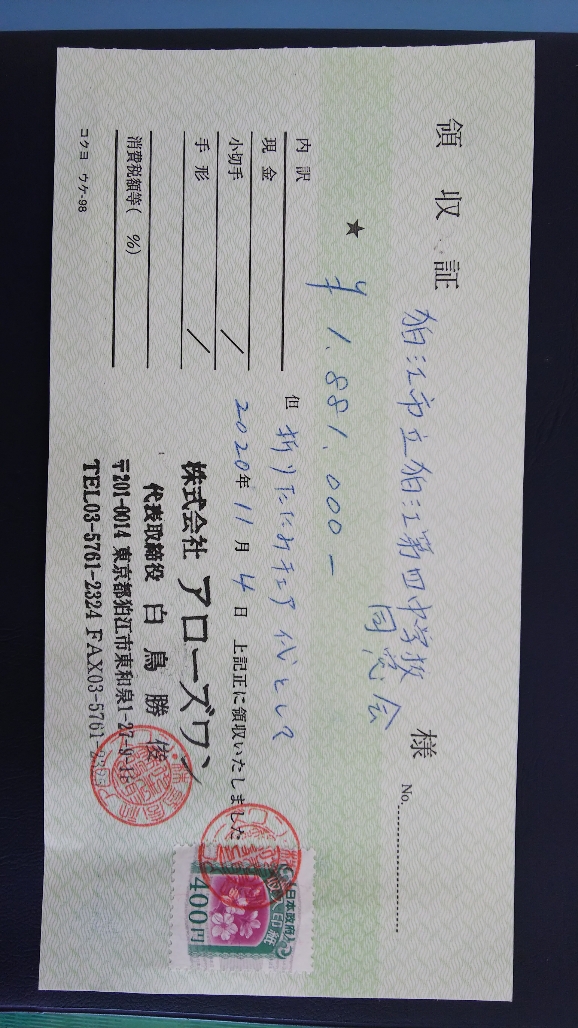 領収証
No.
狛江市立狛江第四中学校
同窓会 様
★ ¥1,881,000-
但 折りたたみチェア代として
2020年11月4日 上記正に領収いたしました
内訳
現金
小切手
手形
消費税額等( %)
コクヨ ウケ-98
株式会社 アローズワン
代表取締役 白鳥勝俊
〒201-0014 東京都狛江市東和泉1-27-9-1
TEL03-5761-2324 FAX03-5761-
日本政府
印紙
400円